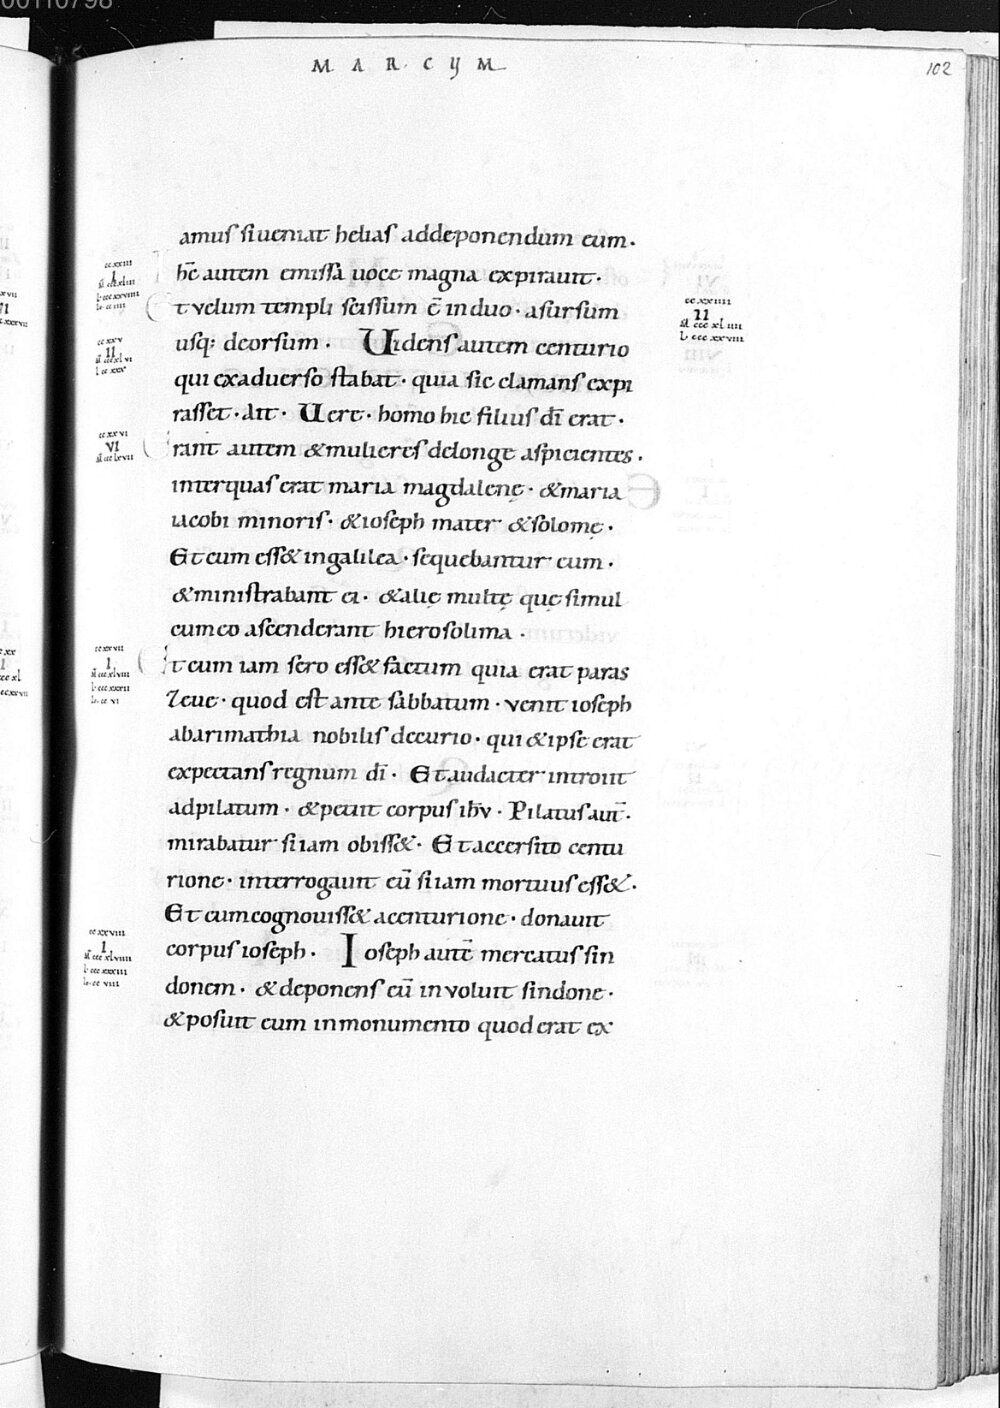 00110798
MARCUM
102
amus si ueniat helias addeponendum eum.
hc̄ autem emissa uoce magna expirauit.
t velum templi scissum ē induo · asursum
usq; deorsum. Uidens autem centurio
qui exaduerso stabat · quia sic clamans expi
rasset · Ait · Uere · homo hic filius dī erat.
rant autem & mulieres delonge aspicientes.
interquas erat maria magdalenę · & maria
iacobi minoris · & ioseph mater & solomę.
Et cum ess& ingalilea · sequebantur eum.
& ministrabant ei · & alię multę quę simul
cumeo ascenderant hierosolima.
t cum iam sero ess& factum quia erat paras
ceue · quod est ante sabbatum · venit ioseph
abarimathia nobilis decurio · qui & ipse erat
expectans regnum dī. Et audacter introiit
adpilatum · & petiit corpus ihv̄. Pilatus aut̄.
mirabatur si iam obiss&. Et accersito centu
rione · interrogauit eū si iam mortuus ess&.
Et cumcognouiss& acenturione · donauit
corpus ioseph. Ioseph autē mercatus sin
donem · & deponens eū inuoluit sindone.
& posuit eum inmonumento quod erat ex
cc xxiiii
II
M ccc xl iiii
L ccc xx viii
cc xx v
II
cc xx vi
VI
cc xx vii
I
cc xx viii
I